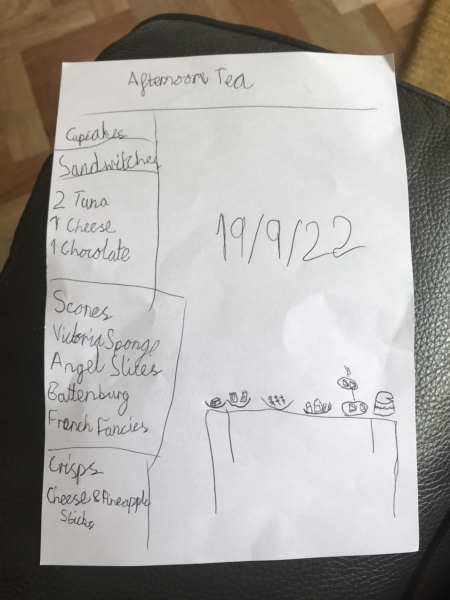 Afternoon Tea
Cupcakes
Sandwitches
2 Tuna
1 Cheese
1 Chocolate
19/9/22
Scones
Victoria Sponge
Angel Slices
Battenburg
French Fancies
Crisps
Cheese & Pineapple
Sticks